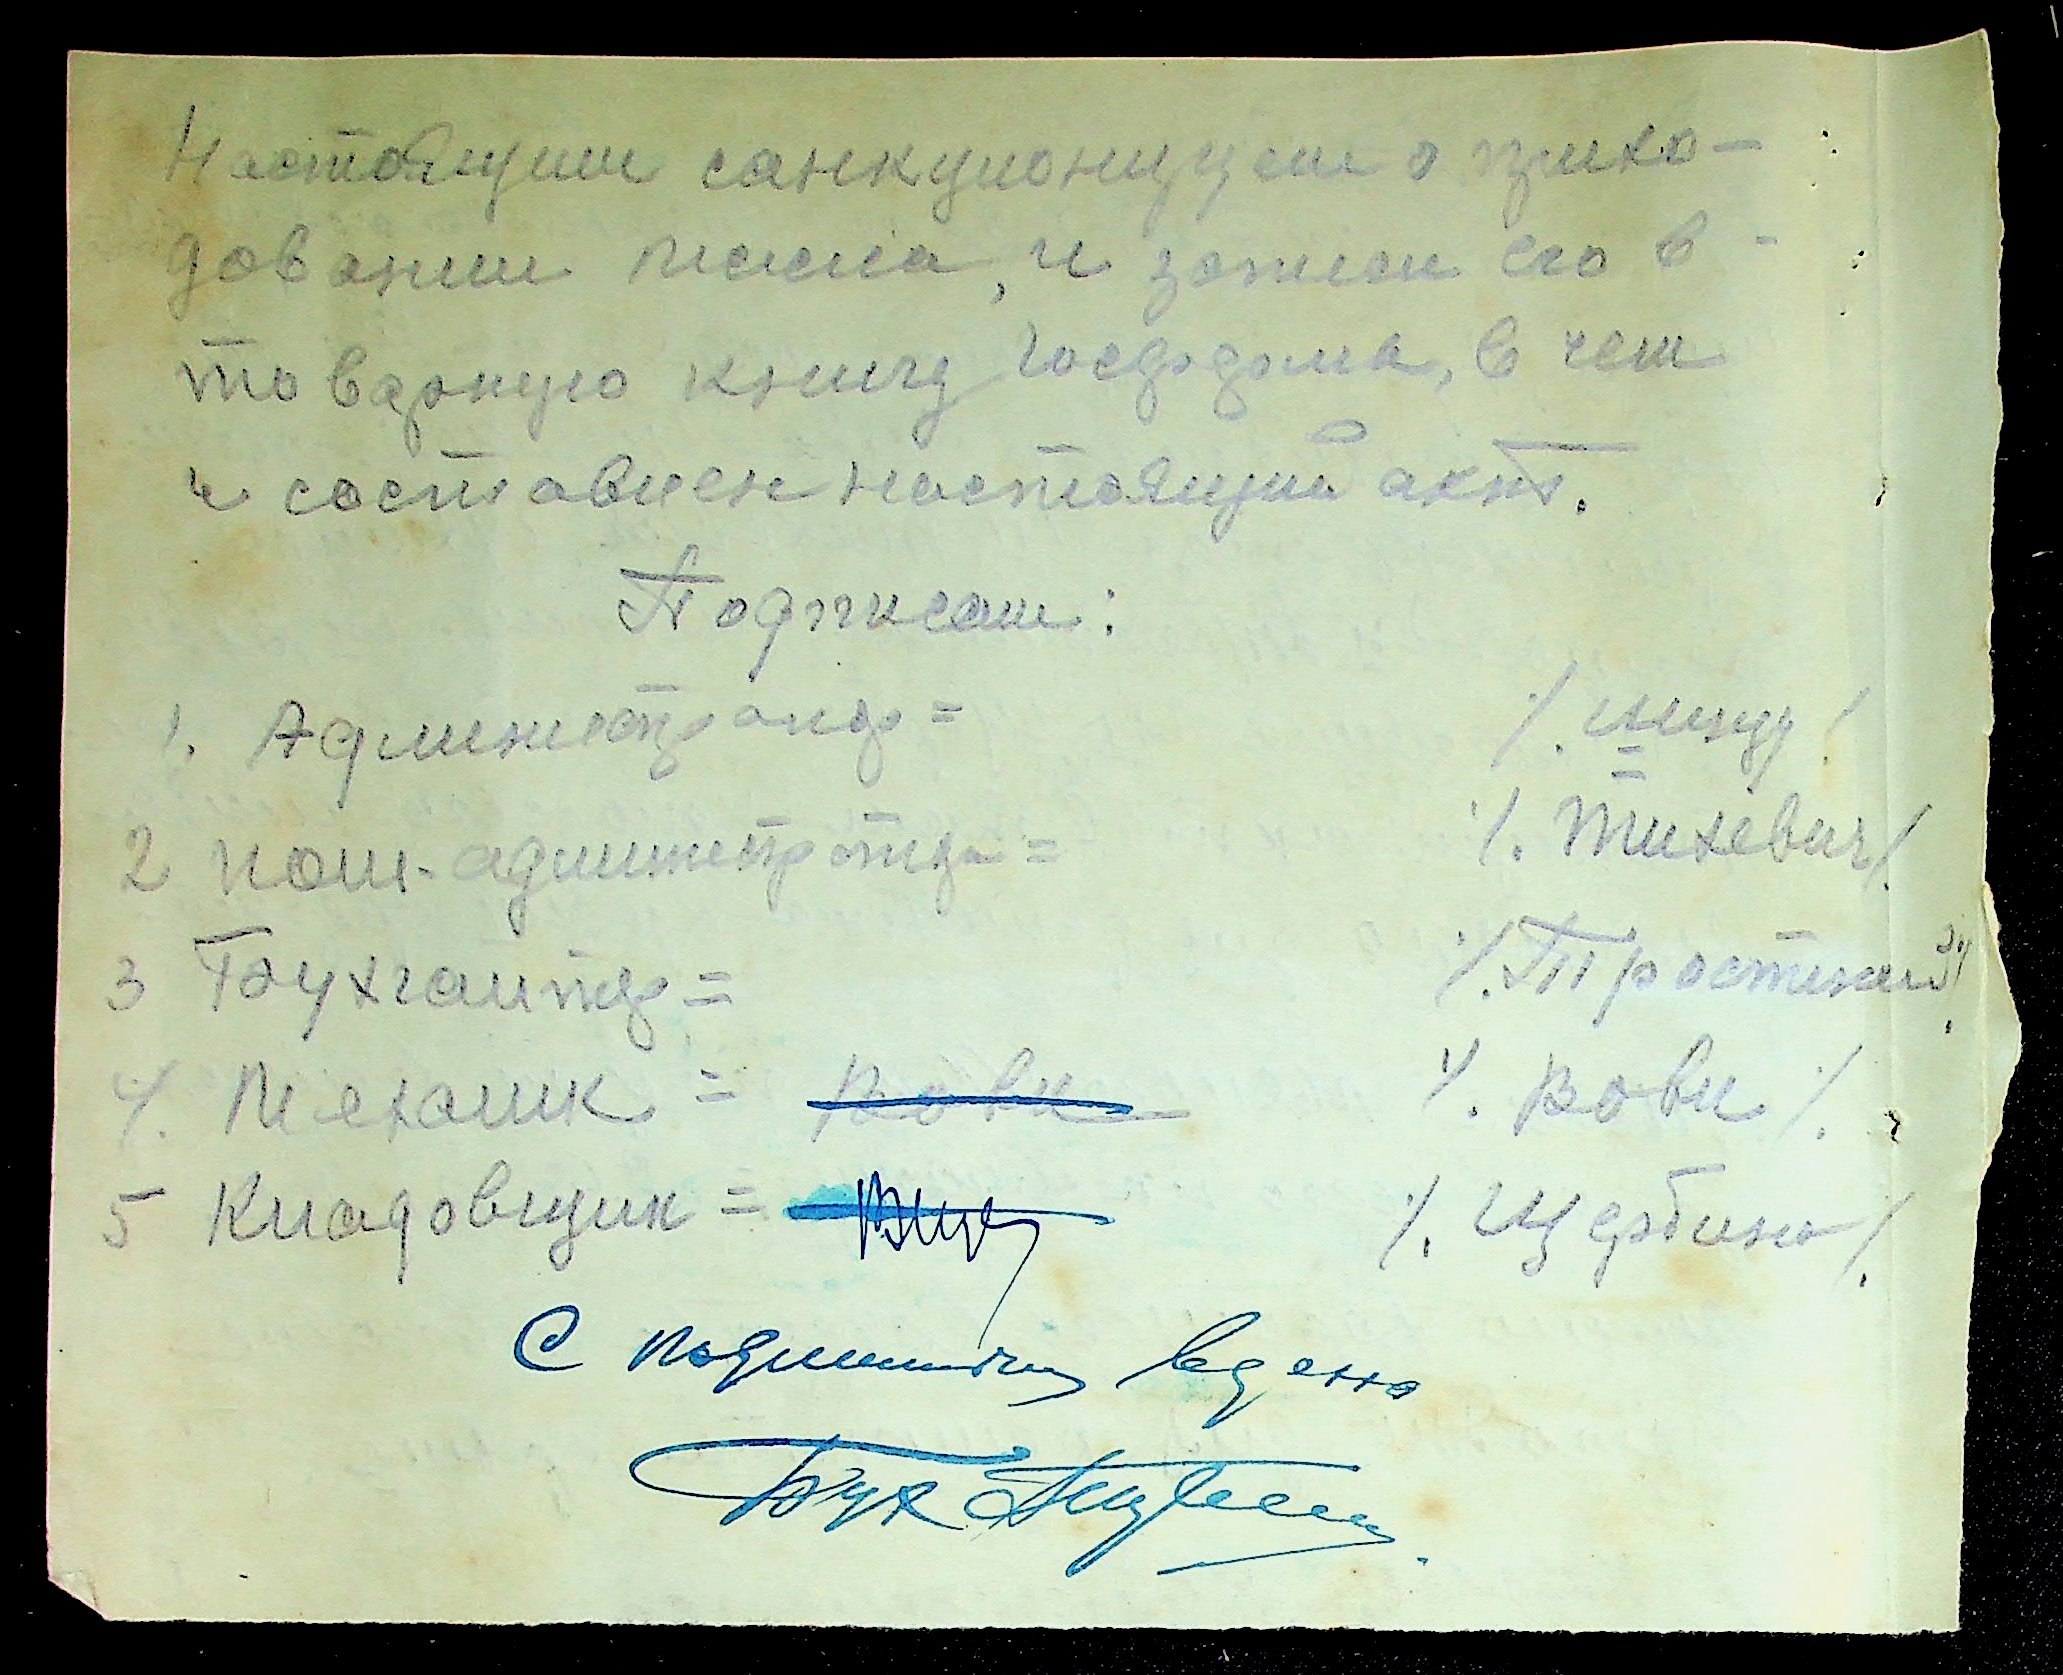 Настоящим санкционируем оприхо-
довании масла, и записи его в -
товарную книгу Госфодома, в чем
и составлен настоящий акт.
Подписали:
1. Администратор =
2 пом. администратора = /. Тихевич/.
3 Бухгалтер = /. Тростинский/.
4. Механик = Вовк /. Вовк /.
5 Кладовщик = /. Щербина/.
С подлинным верно
Бух